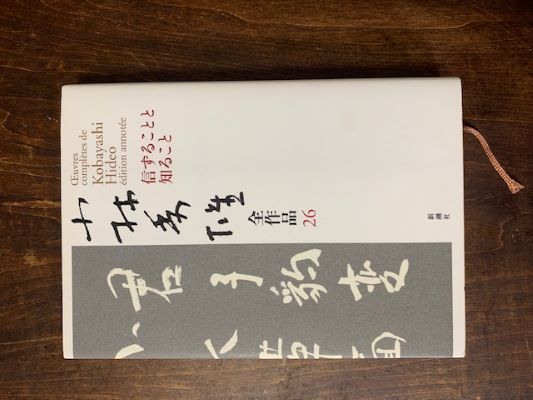 Œuvres
complètes de
Kobayashi
Hideo
édition annotée
信ずることと
知ること
小林秀雄
全作品
26
新潮社
君子豹変